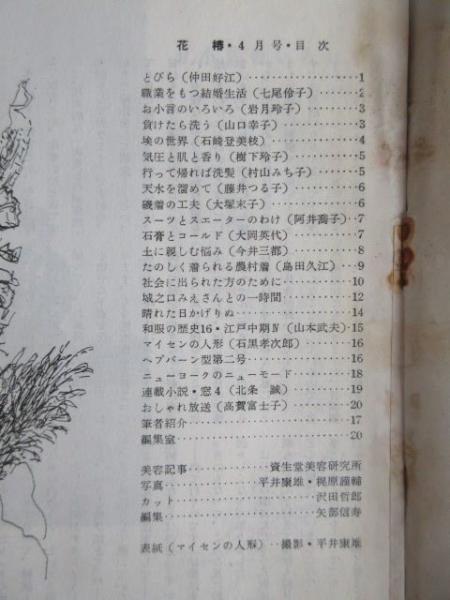 花 椿・4月号・目次
とびら(仲田好江)………………1
職業をもつ結婚生活(七尾伶子)……2
お小言のいろいろ(岩月玲子)………3
負けたら洗う(山口幸子)……………3
埃の世界(石崎登美枝)………………4
気圧と肌と香り(樹下玲子)…………5
行って帰れば洗髪(村山みち子)……5
天水を溜めて(藤井つる子)…………6
磯着の工夫(大塚末子)………………6
スーツとスエーターのわけ(阿井喬子)…7
石膏とコールド(大岡英代)…………7
土に親しむ悩み(今井三都)…………8
たのしく着られる農村着(島田久江)…9
社会に出られた方のために…………10
城之口みえさんとの一時間…………12
晴れた日かげりぬ……………………14
和服の歴史16・江戸中期Ⅳ(山本武夫)…15
マイセンの人形(石黒孝次郎)………16
ヘプバーン型第二号…………………16
ニューヨークのニューモード………18
連載小説・窓4(北条 誠)……………19
おしゃれ放送(高賀富士子)…………20
筆者紹介………………………………17
編集室…………………………………20
美容記事…………資生堂美容研究所
写真…………平井康雄・梶原謹輔
カット…………………沢田哲郎
編集……………………矢部信寿
表紙(マイセンの人形)‥撮影・平井康雄